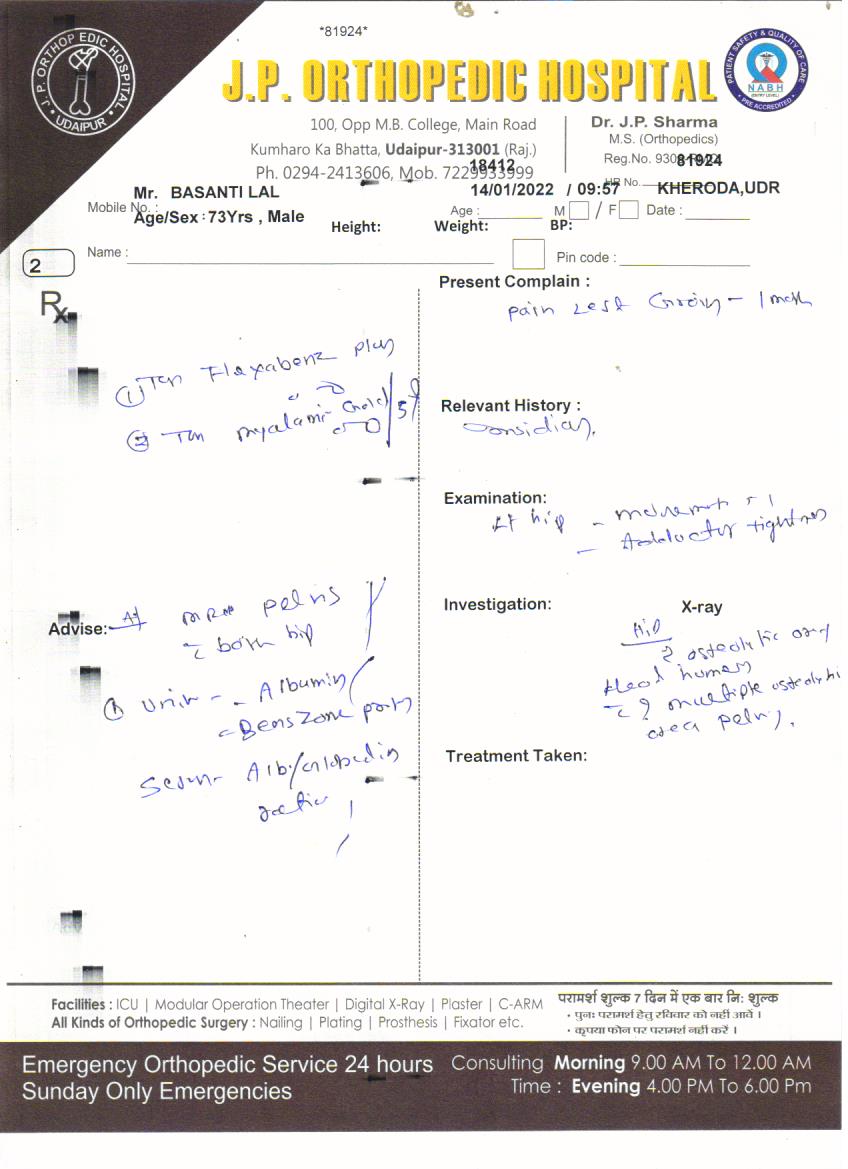 *81924*
J.P. ORTHOPEDIC HOSPITAL
UDAIPUR
J.P. ORTHOPEDIC HOSPITAL
PATIENT SAFETY & QUALITY OF CARE
NABH
(ENTRY LEVEL)
PRE ACCREDITED
100, Opp M.B. College, Main Road
Kumharo Ka Bhatta, Udaipur-313001 (Raj.)
Ph. 0294-2413606, Mob. 7229933999
Dr. J.P. Sharma
M.S. (Orthopedics)
Reg.No.
18412
81924
HR No.
Mr. BASANTI LAL
14/01/2022 / 09:57
KHERODA,UDR
Mobile No. :
Age/Sex : 73Yrs , Male
Age :
M / F
Date :
Height:
Weight:
BP:
2
Name :
Pin code :
Rx
Present Complain :
Pain Groin - 1 month
① Flexabenz plus
② Gold
Relevant History :
Examination:
Lt hip - movement
- Adductor tightness
Investigation:
X-ray
Hip
osteolytic
Head
? multiple osteolytic
area pelvis.
Advise:
MRI pelvis
both hip
Urin - Albumin
Serum - Alb/
Treatment Taken:
Facilities : ICU | Modular Operation Theater | Digital X-Ray | Plaster | C-ARM
All Kinds of Orthopedic Surgery : Nailing | Plating | Prosthesis | Fixator etc.
परामर्श शुल्क 7 दिन में एक बार नि: शुल्क
• पुनः परामर्श हेतु रविवार को नहीं आवें ।
• कृपया फोन पर परामर्श नहीं करें ।
Emergency Orthopedic Service 24 hours
Sunday Only Emergencies
Consulting Morning 9.00 AM To 12.00 AM
Time : Evening 4.00 PM To 6.00 Pm